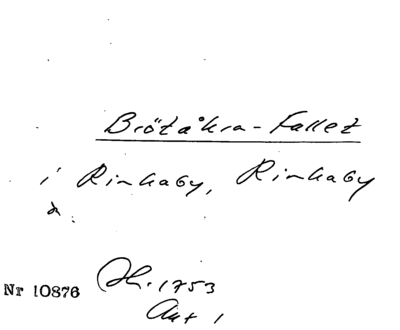 Brötåkra-Fallet
i Rinkaby, Rinkaby
d.
Nr 10876
Jh. 1753
Akt 1